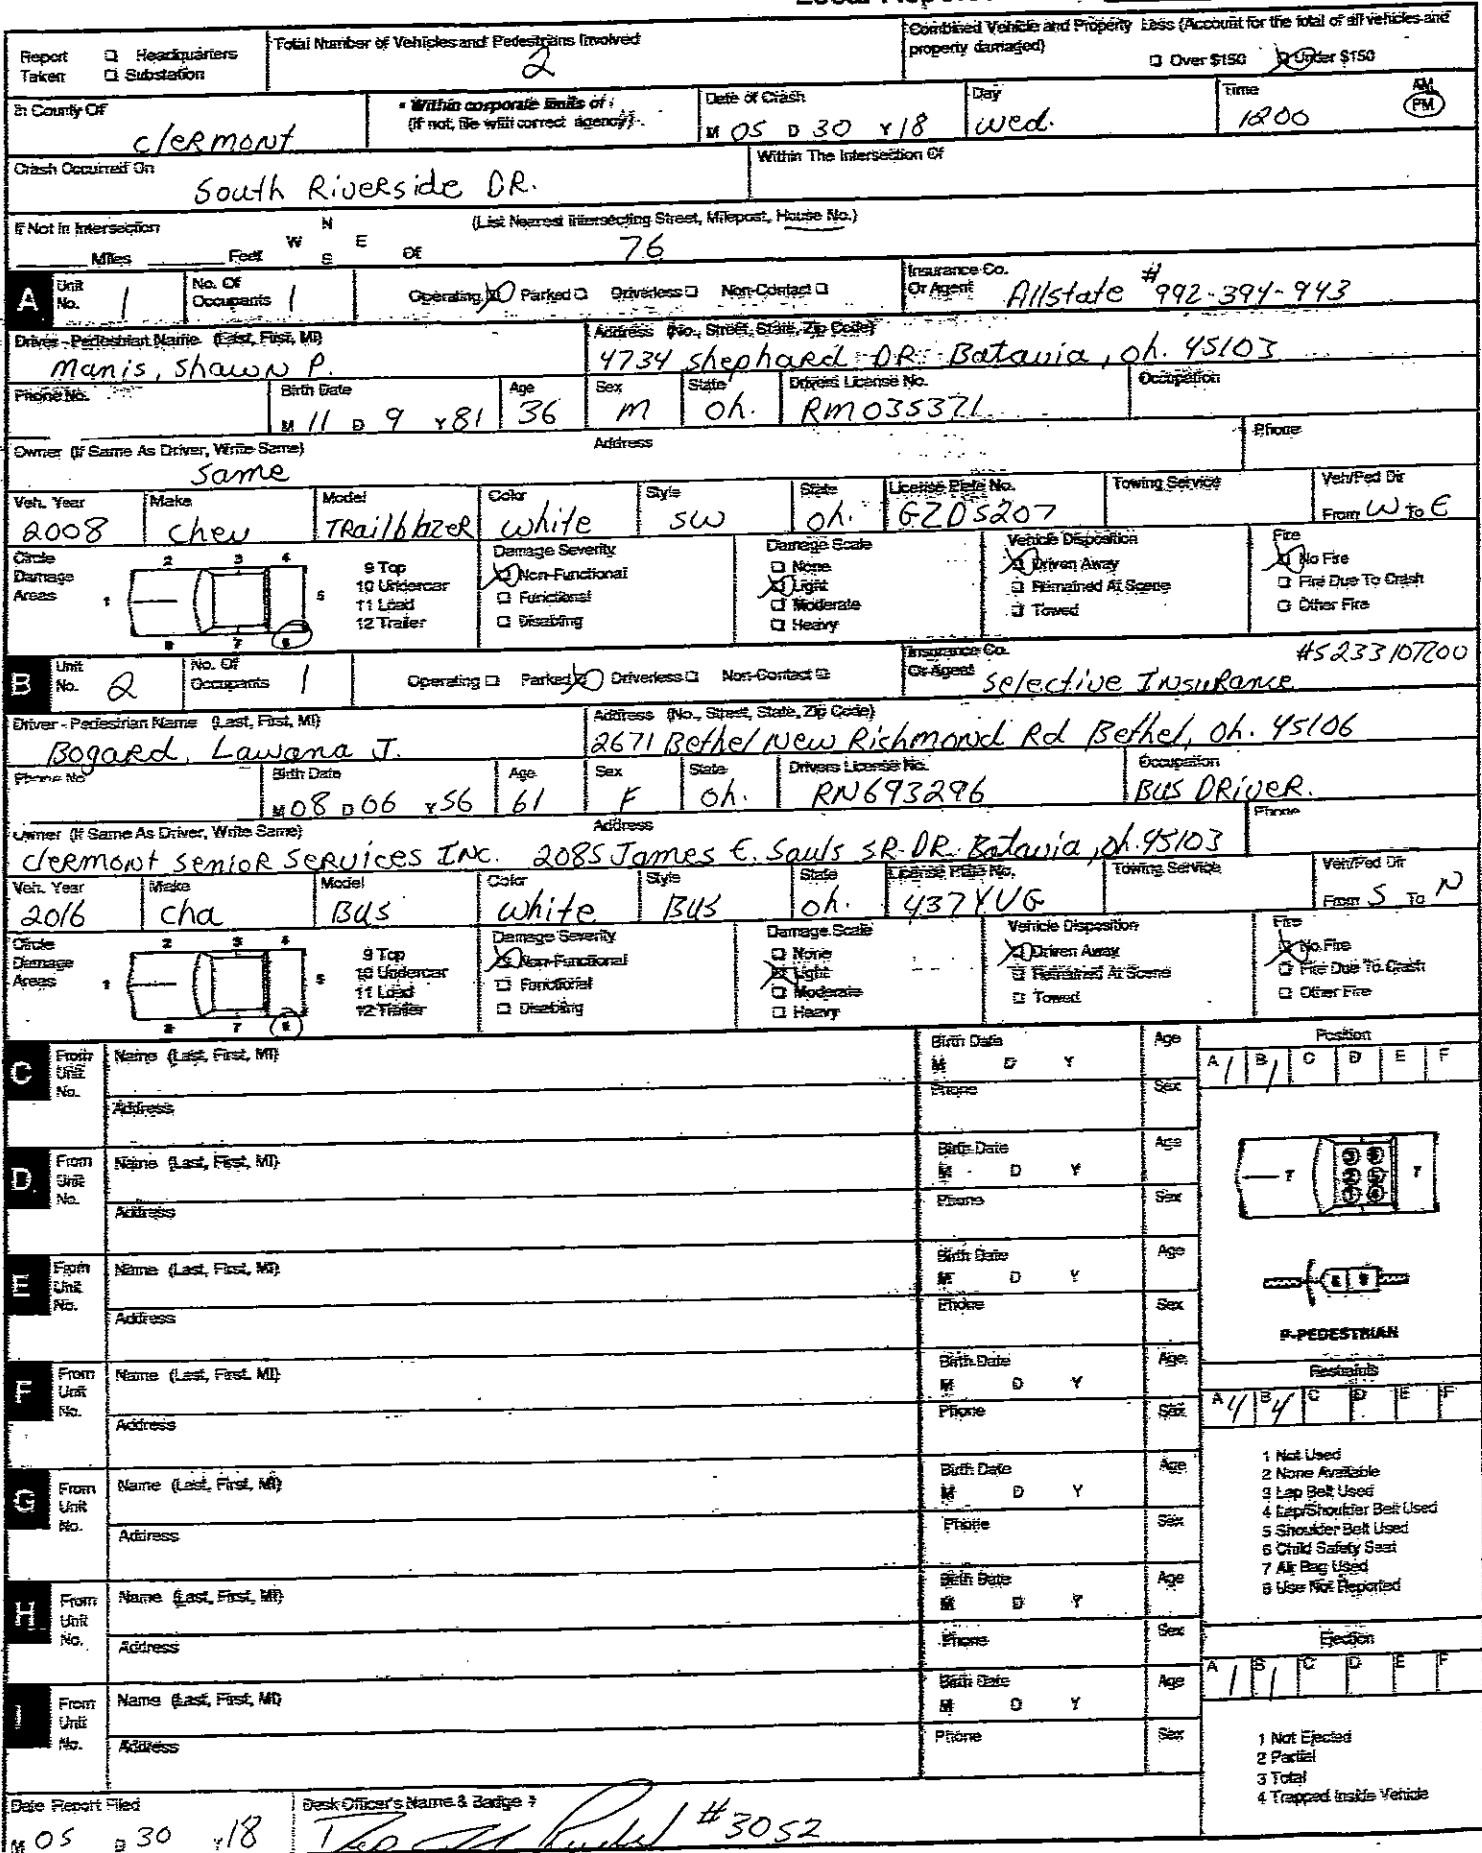 Report Taken ☐ Headquarters ☐ Substation
Total Number of Vehicles and Pedestrians Involved 2
Combined Vehicle and Property Loss (Account for the total of all vehicles and property damaged) ☐ Over $150 ☒ Under $150
In County Of Clermont
• Within corporate limits of: (If not, file with correct agency)
Date of Crash M 05 D 30 Y 18
Day Wed.
Time 1200 AM PM
Crash Occurred On South Riverside DR.
Within The Intersection Of
If Not In Intersection ____ Miles ____ Feet N W E S Of
(List Nearest Intersecting Street, Milepost, House No.) 76
A Unit No. 1
No. Of Occupants 1
Operating ☒ Parked ☐ Driverless ☐ Non-Contact ☐
Insurance Co. Or Agent Allstate # 992-394-943
Driver - Pedestrian Name (Last, First, MI) Manis, Shawn P.
Address (No., Street, State, Zip Code) 4734 Shephard DR. Batavia, Oh. 45103
Phone No.
Birth Date M 11 D 9 Y 81
Age 36
Sex M
State Oh.
Drivers License No. RM035371
Occupation
Owner (If Same As Driver, Write Same) Same
Address
Phone
Veh. Year 2008
Make Chev
Model TRailblazeR
Color White
Style SW
State Oh.
License Plate No. GZD5207
Towing Service
Veh/Ped Dir From W To E
Circle Damage Areas 1 2 3 4 5 6 7 8
9 Top
10 Undercar
11 Load
12 Trailer
Damage Severity ☒ Non-Functional ☐ Functional ☐ Disabling
Damage Scale ☐ None ☒ Light ☐ Moderate ☐ Heavy
Vehicle Disposition ☒ Driven Away ☐ Remained At Scene ☐ Towed
Fire ☒ No Fire ☐ Fire Due To Crash ☐ Other Fire
B Unit No. 2
No. Of Occupants 1
Operating ☐ Parked ☒ Driverless ☐ Non-Contact ☐
Insurance Co. Or Agent Selective INsuRance #S233107200
Driver - Pedestrian Name (Last, First, MI) Bogard, Lawana J.
Address (No., Street, State, Zip Code) 2671 Bethel New Richmond Rd Bethel, Oh. 45106
Phone No
Birth Date M 08 D 06 Y 56
Age 61
Sex F
State Oh.
Drivers License No. RN693296
Occupation Bus DRiveR.
Owner (If Same As Driver, Write Same) Clermont Senior Services INC.
Address 2085 James E. Sauls SR. DR. Batavia, oh. 45103
Phone
Veh. Year 2016
Make Cha
Model BUS
Color White
Style BUS
State Oh.
License Plate No. 437YUG
Towing Service
Veh/Ped Dir From S To N
Circle Damage Areas 1 2 3 4 5 6 7 8
9 Top
10 Undercar
11 Load
12 Trailer
Damage Severity ☒ Non-Functional ☐ Functional ☐ Disabling
Damage Scale ☐ None ☒ Light ☐ Moderate ☐ Heavy
Vehicle Disposition ☒ Driven Away ☐ Remained At Scene ☐ Towed
Fire ☒ No Fire ☐ Fire Due To Crash ☐ Other Fire
C From Unit No. Name (Last, First, MI) Birth Date M D Y Age
Address Phone Sex
Position
A 1 B 1 C D E F
D From Unit No. Name (Last, First, MI) Birth Date M D Y Age
Address Phone Sex
E From Unit No. Name (Last, First, MI) Birth Date M D Y Age
Address Phone Sex
P-PEDESTRIAN
F From Unit No. Name (Last, First, MI) Birth Date M D Y Age
Address Phone Sex
Restraints
A 4 B 4 C D E F
1 Not Used
2 None Available
3 Lap Belt Used
4 Lap/Shoulder Belt Used
5 Shoulder Belt Used
6 Child Safety Seat
7 Air Bag Used
8 Use Not Reported
G From Unit No. Name (Last, First, MI) Birth Date M D Y Age
Address Phone Sex
H From Unit No. Name (Last, First, MI) Birth Date M D Y Age
Address Phone Sex
Ejection
A 1 B 1 C D E F
I From Unit No. Name (Last, First, MI) Birth Date M D Y Age
Address Phone Sex
1 Not Ejected
2 Partial
3 Total
4 Trapped Inside Vehicle
Date Report Filed M 05 D 30 Y 18
Desk Officer's Name & Badge # #3052